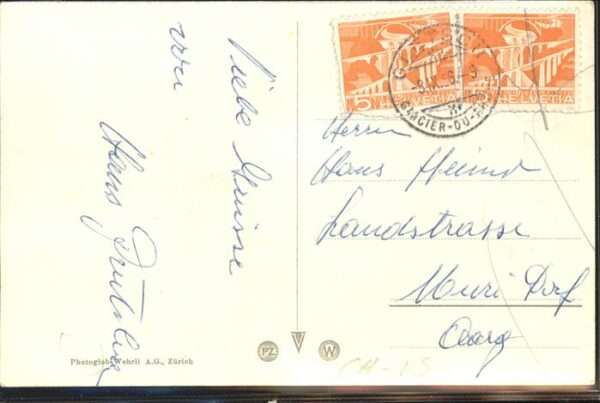 Viele Grüsse
von
Hans
5 HELVETIA
HELVETIA
GLACIER-DU-RH
Herrn
Hans
Landstrasse
Muri Dorf
Aarg
Photoglob-Wehrli A.G., Zürich
PZ
W
CH-